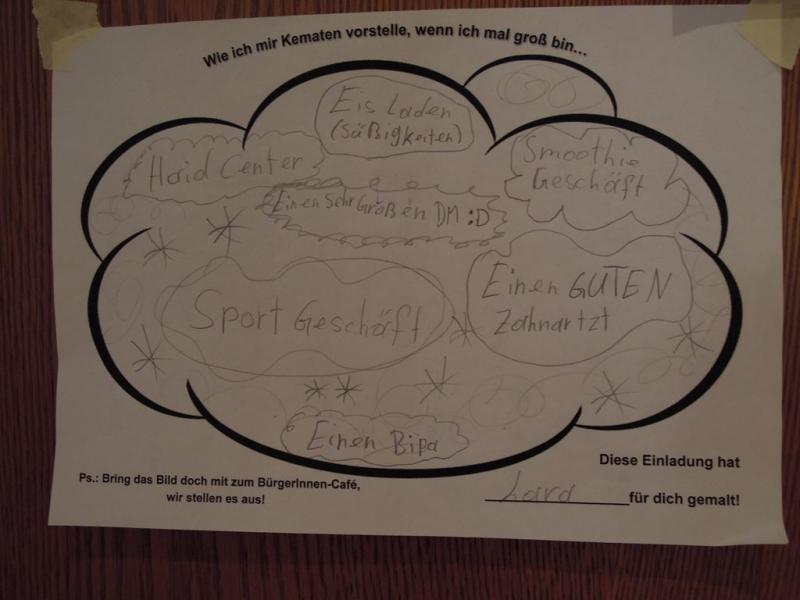 Wie ich mir Kematen vorstelle, wenn ich mal groß bin...
Eis Laden
(Süßigkeiten)
Haid Center
Smoothie
Geschäft
Einen Sehr Großen DM :D
Sport Geschäft
Einen GUTEN
Zahnartzt
Einen Bipa
Diese Einladung hat
Lara für dich gemalt!
Ps.: Bring das Bild doch mit zum BürgerInnen-Café,
wir stellen es aus!